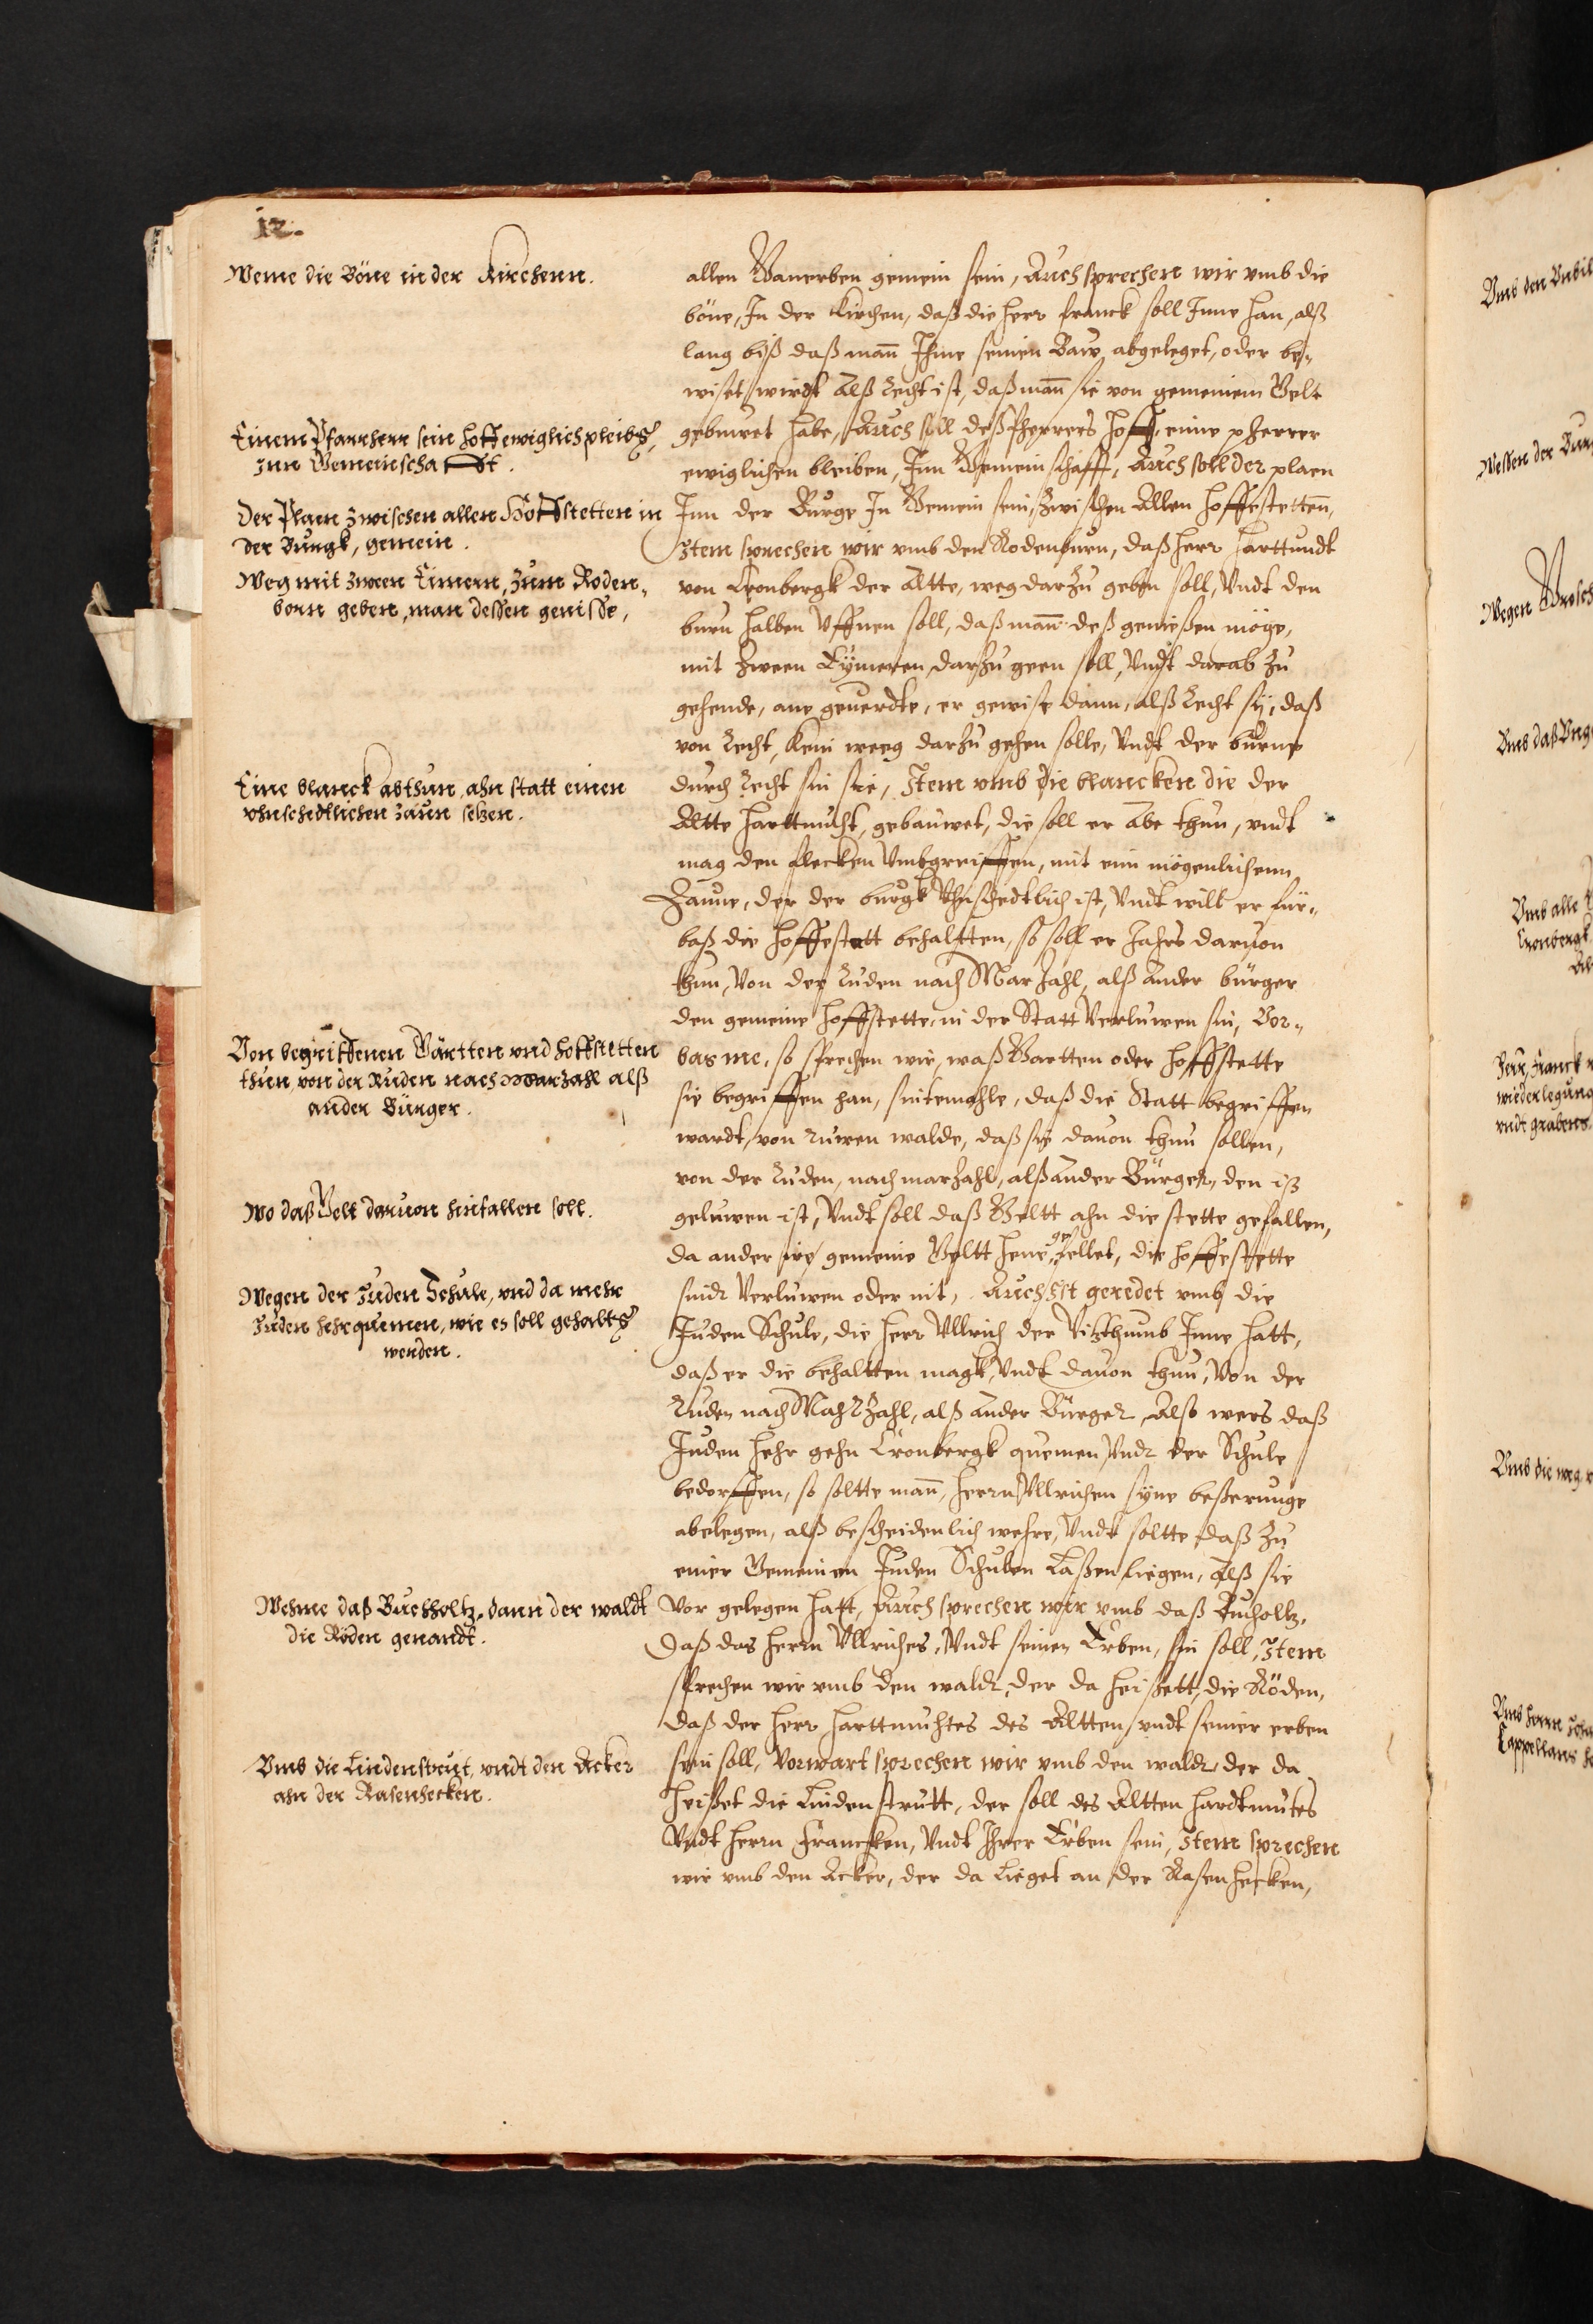 12.
Weme die Böne in der Kirchenn.
Einem Pfarrherr sein hoff ewiglich pleibe,
Inn Gemeinschafft.
Der Plaen zwischen allen Hoffstetten in
der Burgk, gemein.
Weg mit zween Eimern, zum Roden-
born geben, man dessen genisße,
Eine blanck abthun, ahn statt einen
vhnschedtlichen zaun setzen.
Von begriffenen Gärtten vnd hoffstetten
thun von der Ruden nach Marzahl alß
ander Bürger.
Wo daß Gelt daruon hinfallen soll.
Wegen der Juden Schule, vnd da mehr
Juden hehr quemen, wie es soll gehalte
werden.
Wehme daß Buchholtz, dann der waldt
die Röden genandt.
Vmb die Lindenstrut, vndt den Acker
ahn der Rasenhecken.
allen Ganerben gemein sein, Auch sprechen wir vmb die
böne, In der Kirchen, daß die herr Franck soll Inne han, alß
lang biß daß mann Ihme seinen Baw abgeleget, oder be-
wiset wirdt Alß Recht ist, daß mann sie von gemeinem Gelt
gebuwet habe, Auch soll deß Pherrers hoff, eime pherrer
ewiglichen bleiben, Inn Gemeinschafft, Auch soll der plaen
Inn der Burge In Gemein sein, zwischen Allen hoffestettenn,
Item sprechen wir vmb den Rodenburn, daß herr Harttmudt
von Cronbergk der Altte, weg darzu geben soll, Vndt den
burn halben Vffnen soll, daß mann deß genießen möge,
mit zween Eymeren, darzu geen soll, Vndt darab zu
gehende, ane geuerdte, er gewise dann, alß Recht sy, daß
von Recht, kein weeg darzu gehen solle, Vndt der burne
durch Recht sin sie, Item vmb die blancken die der
Altte Harttmuht, gebauwet, die soll er Abe thun, vndt
mag den flecken Vmbgreiffen, mit eim mögenlichenn
Zaune, der der burgk Vhnschedtlich ist, Vndt wilt er für-
baß die hoffestatt behaltten, so soll er Jahrs daruon
thun, Von der Ruden nach Mar Zahl, alß ander bürger
den gemeine hoffstette, in der Statt Verluwen sin, Vor-
bas me, so sprechen wir, waß Gartten oder hoffstette
sie begriffen han, sintemahle, daß die Statt begriffen
wardt, von ruwen walde, daß sie dauon thun sollen,
von der Ruden, nach marzahl, alß ander Bürger, den iß
geluwen ist, Vndt soll daß Geltt ahn die stette gefallen,
da ander ire gemeine Geltt hene gefellet, die hoffestette
sindt Verluwen oder nit, Auch Ist geredet vmb die
Juden Schule, die herr Vllrich der Vitzthumb Inne hatt,
daß er die behaltten magk, Vndt dauon thun, Von der
Ruden nach MahrZahl, alß ander Bürger, Also wers daß
Juden hehr gehn Cronbergk quemen, Vndt der Schule
bedorffen, so soltte mann, herrn Vllrichen syne beßerunge
abelegen, alß bescheidenlich wehre, Vndt soltte daß zu
einer Gemeinen Juden Schulen Laßen liegen, Alß sie
vor gelegen hatt, Auch sprechen wir vmb daß Buchholtz,
daß das herrn Vllriches, Vndt seinen Erben, sin soll, Item
sprechen wir vmb den waldt, der da heißett, die Röden,
daß der herr Harttmuhtes des Altten, vndt seiner erben
sein soll, Vorwart sprechen wir vmb den waldt, der da
heißet die Lindenstrutt, der soll des Altten Hardtmutes
Vndt herrn Francken, Vndt Ihrer Erben sein, Item sprechen
wir vmb den Acker, der da Lieget an der Rasenhecken,